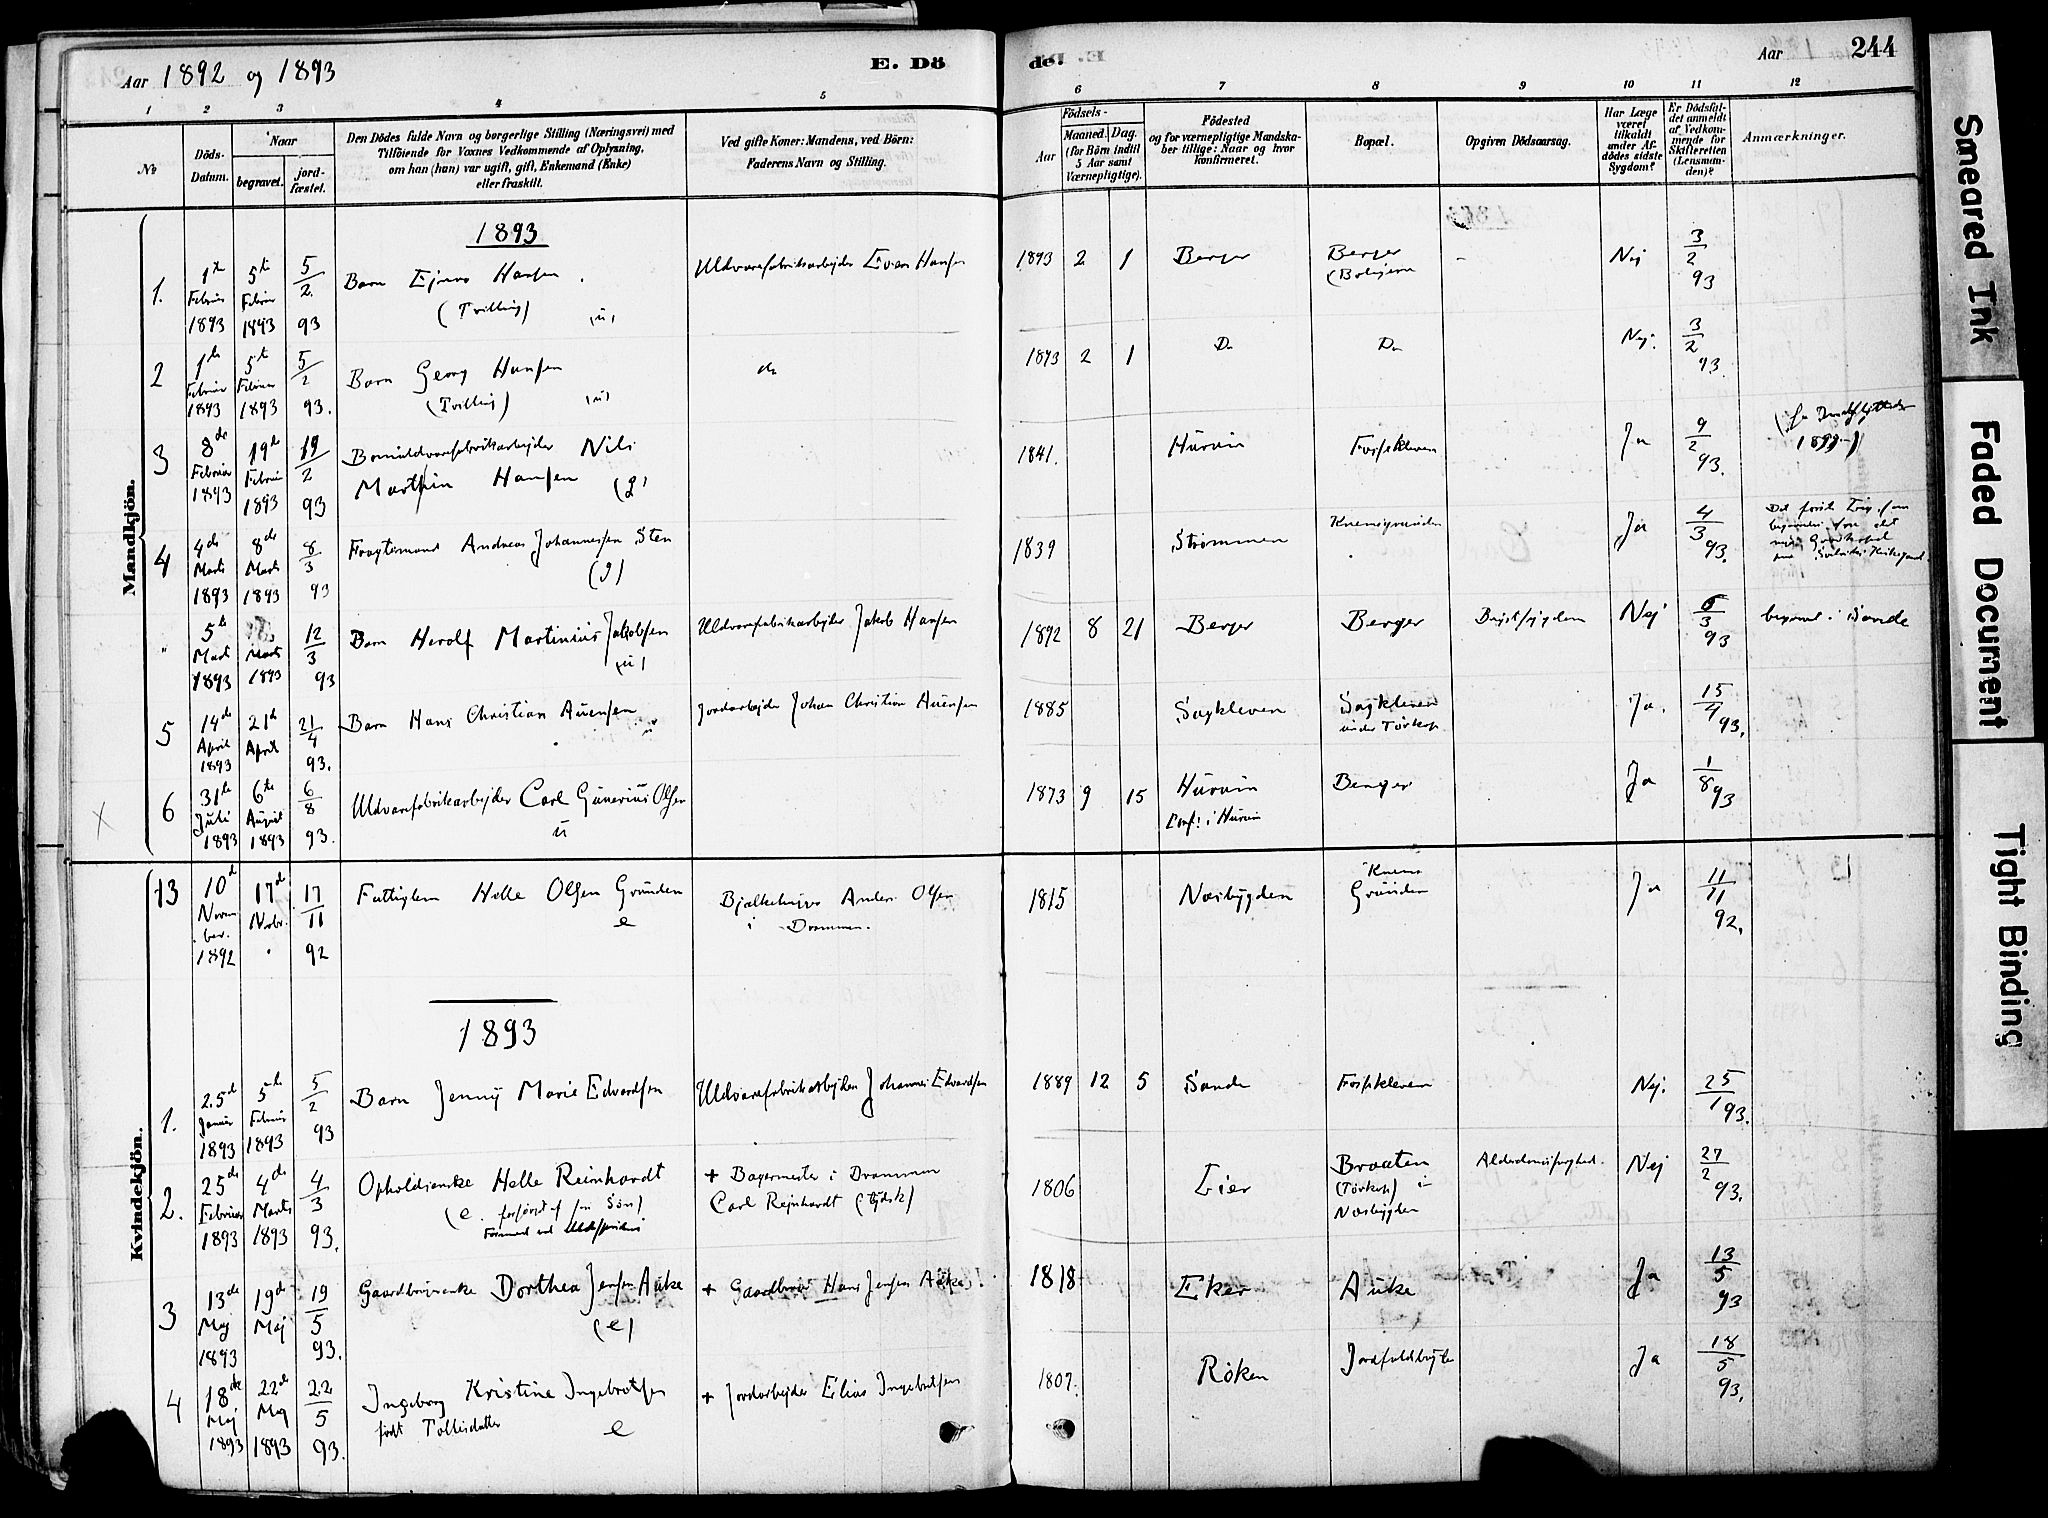 Aar 1892 og 1893
E. Dö
de.
Aar
244
1 2 3 4 5 6 7 8 9 10 11 12
No
Döds-Datum.
Naar
begravet.
jord-fæstet.
Den Dödes fulde Navn og borgerlige Stilling (Næringsvei) med
Tilföiende for Voxnes Vedkommende af Oplysning,
om han (hun) var ugift, gift, Enkemand (Enke)
eller fraskilt.
Ved gifte Koner: Mandens, ved Börn:
Faderens Navn og Stilling.
Födsels-
Aar
Maaned.
Dag.
(for Börn indtil
5 Aar samt
Værnepligtige).
Födested
og for værnepligtige Mandska-
ber tillige: Naar og hvor
konfirmeret.
Bopæl.
Opgiven Dödsaarsag.
Har Læge
været
tilkaldt
under Af-
dödes sidste
Sygdom?
Er Dödsfal-
det anmeldt
af Vedkom-
mende for
Skifteretten
(Lensman-
den)?
Anmærkninger.
Mandkjön.
1893
1. 1ste Februar 1893 5te Februar 1893 5/2 93 Barn Ejnar Hansen (Tvilling) (u) Uldvarefabrikarbejder Even Hansen 1893 2 1 Berger Berger - Nej 3/2 93
2 1ste Februar 1893 5te Februar 1893 5/2 93. Barn Georg Hansen (Tvilling) (u) do 1893 2 1 Do Do Nej. 3/2 93.
3 8de Februar 1893 19de Februar 1893 19/2 93 Bomuldvarefabrikarbejder Nils Marthin Hansen (g) 1841. Hurum Fossekleven Ja 9/2 93.
4 4de Marts 1893 8de Marts 1893 8/3 93 Fragtemand Andreas Johannessen Sten (g) 1839 Strømmen Knemsgrunden Ja 4/3 93.
" 5te Marts 1893 Marts 1893 12/3 93 Barn Harolf Martinius Jakobsen (u) Uldvarefabrikarbejder Jakob Hansen 1892 8 21 Berger Berger Brystsygdom Nej 6/3 93 begravet i Sande
5 14de April 1893 21de April 21/4 93. Barn Hans Christian Auensen u Jordarbejder Johan Christian Auensen 1885 Sagkleven Sagkleven under Tørkop Ja. 15/4 93.
X 6 31te Juli 1893 6te August 1893 6/8 93. Uldvarefabrikarbejder Carl Gunerius Olsen u 1873 9 15 Hurum Conf. i Hurum Berger Ja 1/8 93
Kvindekjön.
13 10de November 1892 17de Novbr. 17/11 92 Fattiglem Helle Olsen Grunden e Bjælkehugger Anders Olsen i Drammen. 1815 Næsbygden Knems Grunden Ja 11/11 92.
1893
1. 25de Januar 1893 5te Februar 1893 5/2 93 Barn Jenny Marie Edvardsen Uldvarefabrikarbejder Johannes Edvardsen 1889 12 5 Sande Fossekleven Nej. 25/1 93.
2. 25de Februar 1893 4de Marts 1893 4/3 93. Opholdsenke Helle Reinhardt (e. forsørget af sin Søn) + Bagermester i Drammen Carl Rejnhardt (tydsk) 1806 Lier Braaten (Tørkop) i Næsbygden Alderdomssvaghed. Nej 27/2 93.
3 13de Maj 1893 19de Maj 19/5 93. Gaardbrugerenke Dorthea Jensen Auke (e) + Gaardbruger Hans Jensen Auke 1818 Eker Auke Ja 13/5 93
4 18de Maj 1893 22de Maj 1893 22/5 93. Ingeborg Kristine Ingebretsen født Tollesdatter e + Jordarbejder Elias Ingebretsen 1807. Røken Ja 18/5 93.
Smeared Ink
Faded Document
Tight Binding